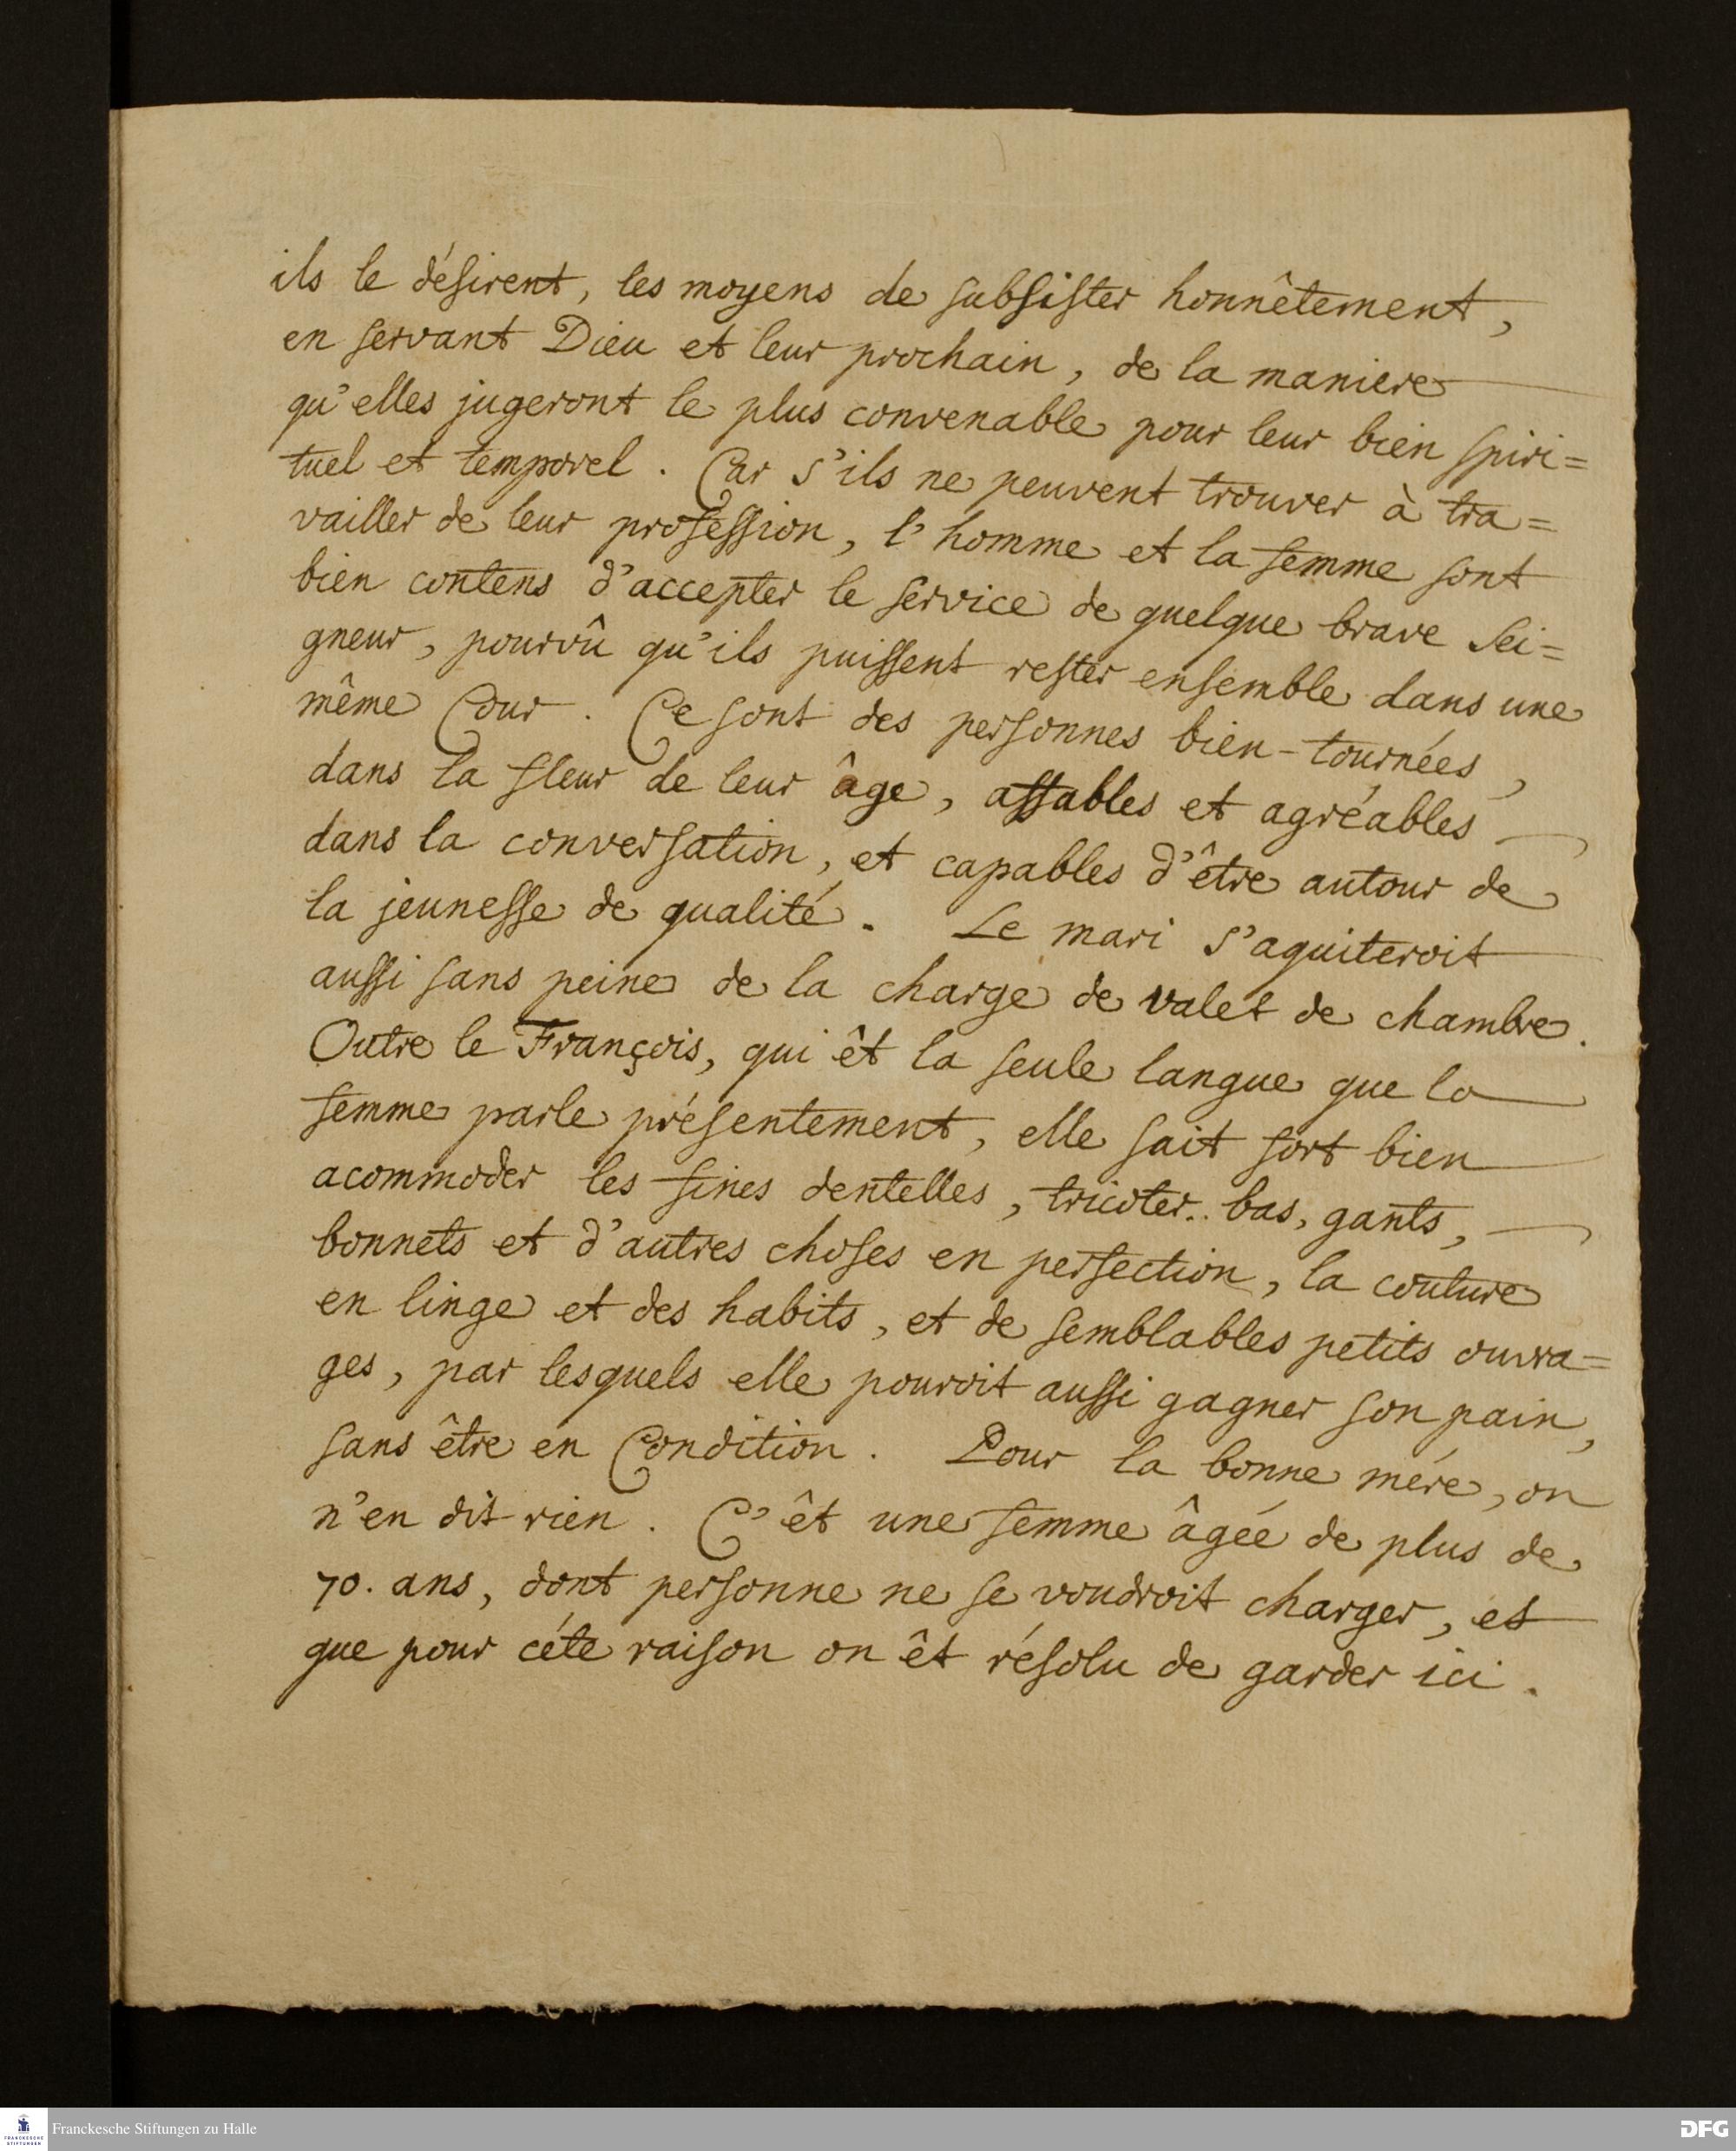 ils le désirent, les moyens de subsister honnêtement,
en servant Dieu et leur prochain, de la maniere
qu'elles jugeront le plus convenable pour leur bien spiri=
tuel et temporel. Car s'ils ne peuvent trouver à tra=
vailler de leur profession, l'homme et la femme sont
bien contens d'accepter le service de quelque brave Sei=
gneur, pourvû qu'ils puissent rester ensemble dans une
même Cour. Ce sont des personnes bien-tournées,
dans la fleur de leur âge, affables et agréables
dans la conversation, et capables d'être autour de
la jeunesse de qualité. Le mari s'aquiteroit
aussi sans peine de la charge de valet de chambre.
Outre le François, qui êt la seule langue que la
femme parle présentement, elle sait fort bien
acommoder les fines dentelles, tricoter bas, gants,
bonnets et d'autres choses en perfection, la couture
en linge et des habits, et de semblables petits ouvra=
ges, par lesquels elle pouroit aussi gagner son pain,
sans être en Condition. Pour la bonne mére, on
n'en dit rien. C'êt une femme âgée de plus de
70. ans, dont personne ne se voudroit charger, et
que pour céte raison on êt résolu de garder ici.
FRANCKESCHE STIFTUNGEN
Franckesche Stiftungen zu Halle
DFG